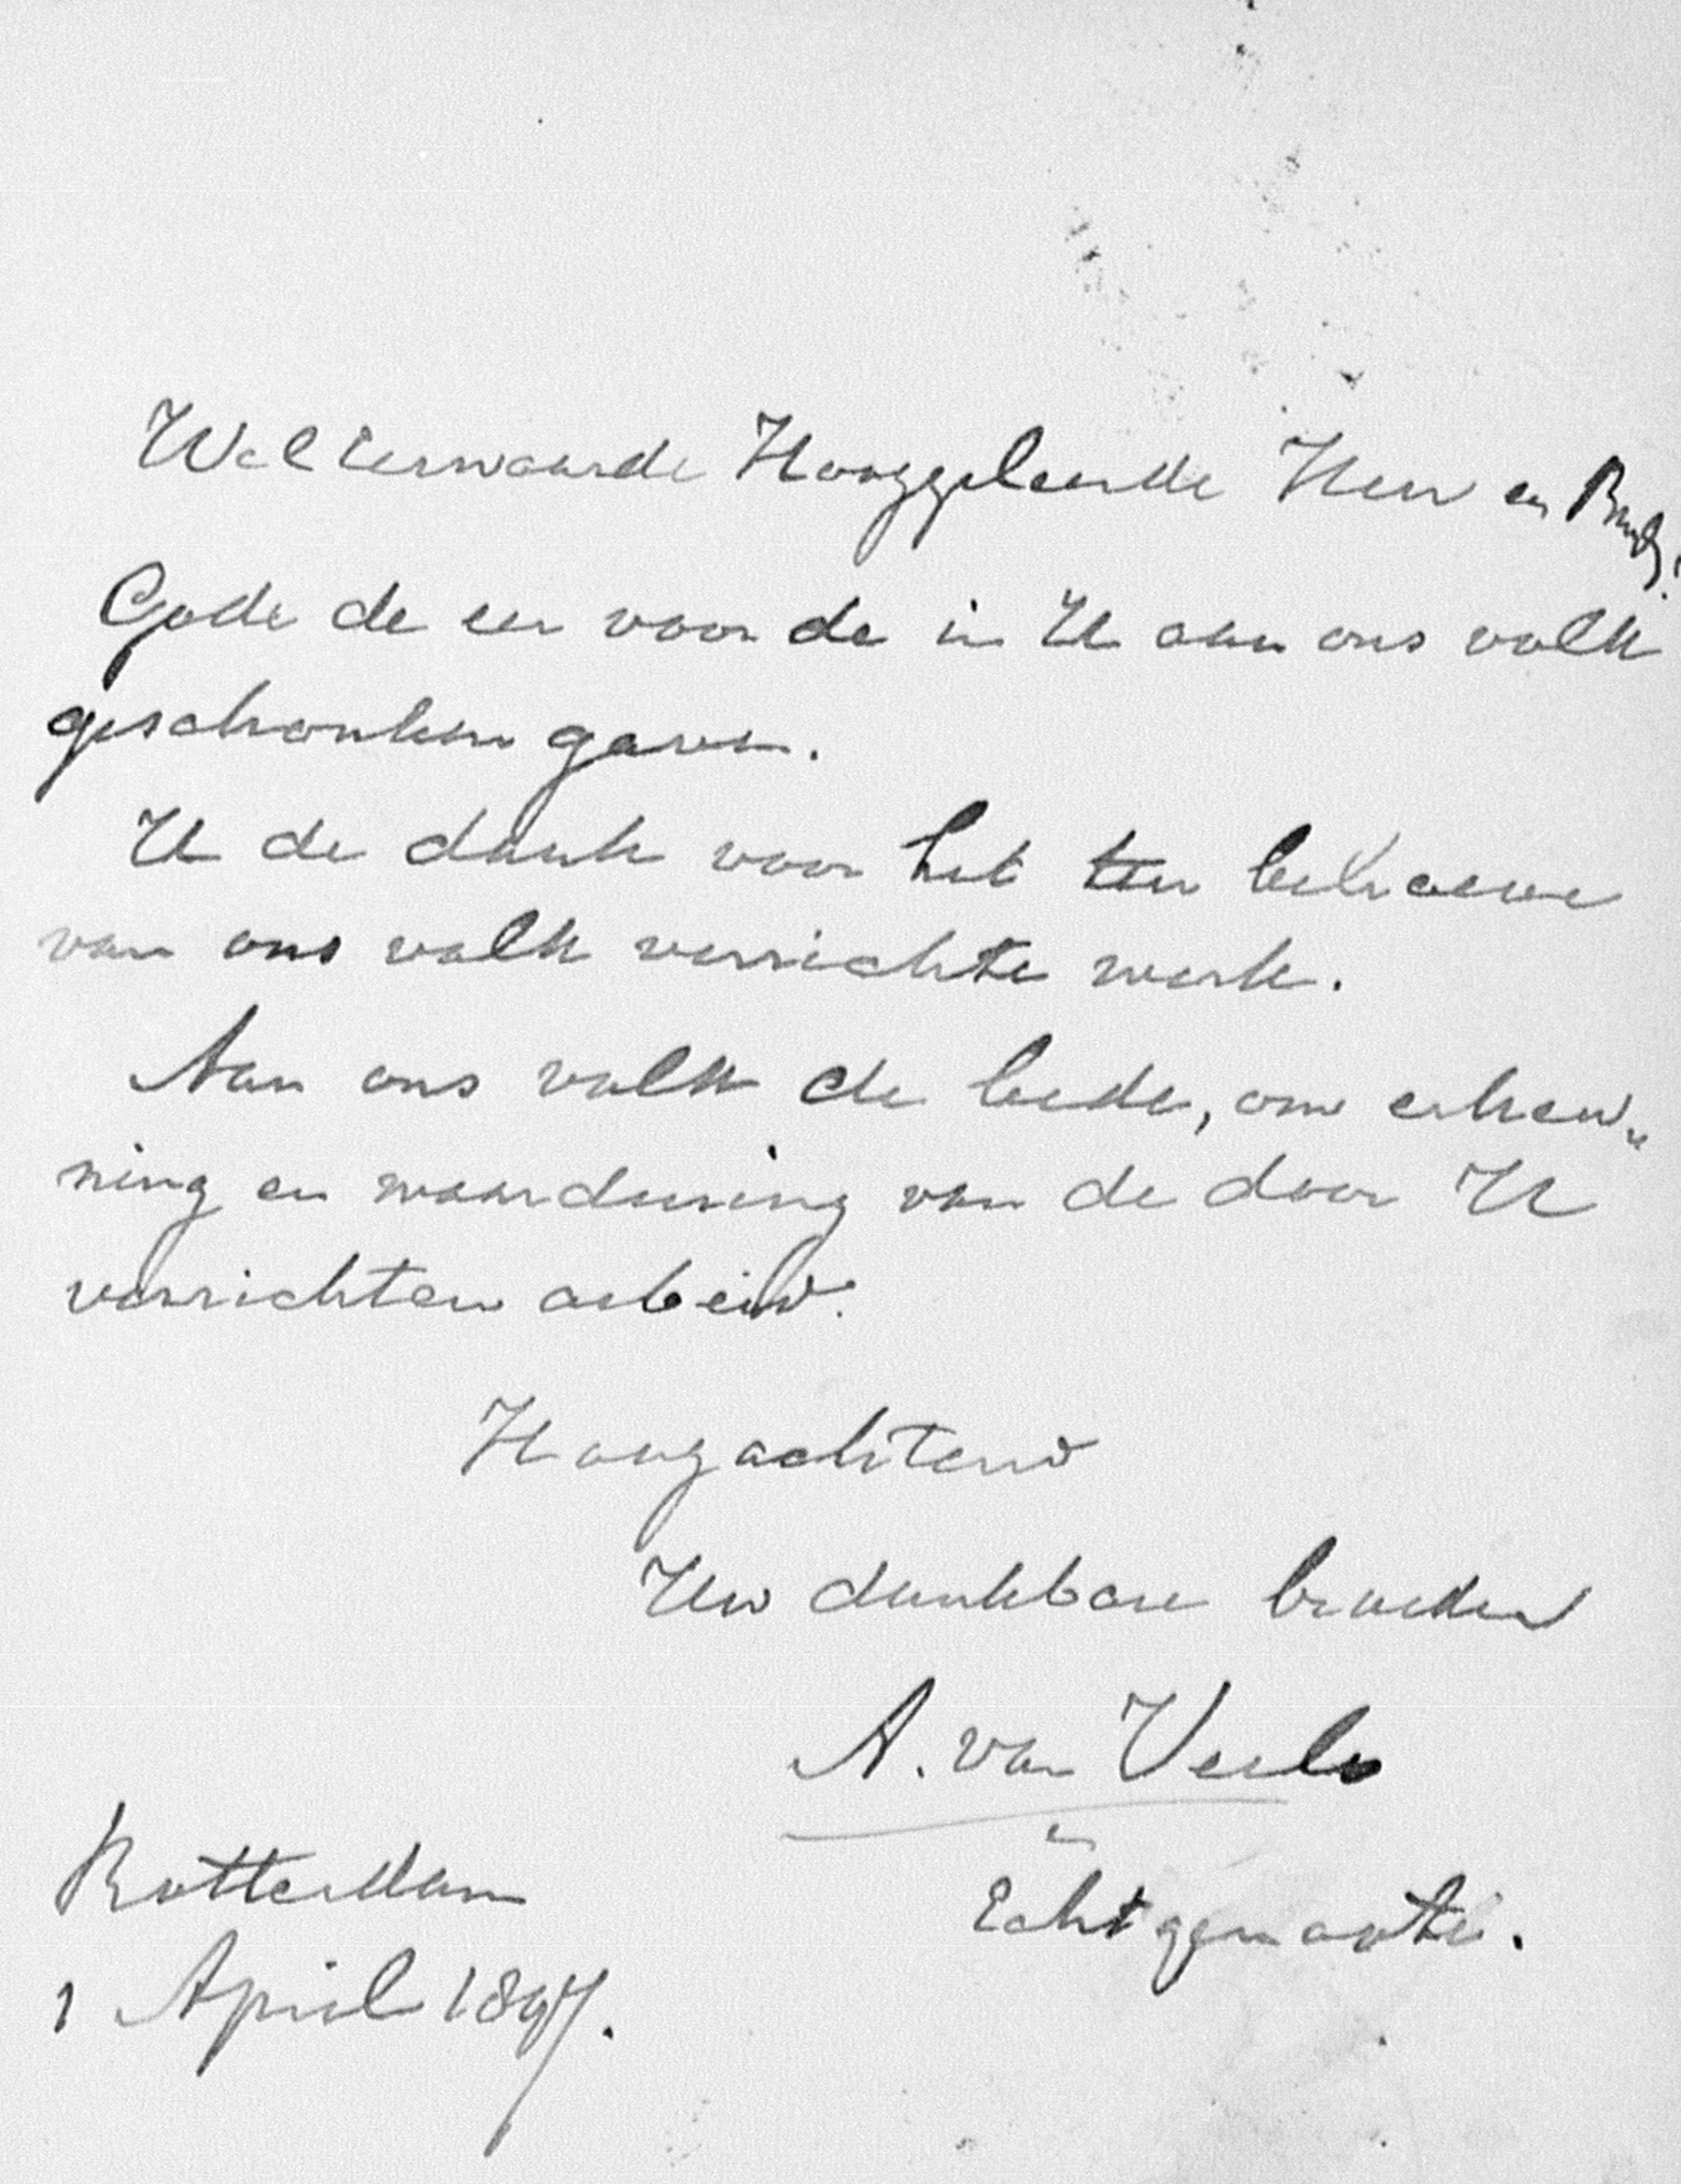 WelEerwaarde Hooggeleerde Heer en Broeder!
Gode de eer voor de in U aan ons volk
geschonken gaven.
U de dank voor het ten behoeve
van ons volk verrichte werk.
Aan ons volk de bede, om erken„
ning en waardeering van de door U
verrichten arbeid.
Hoogachtend
Uw dankbare broeder
A. van Veelo
en
Echtgenoote.
Rotterdam
1 April 1897.